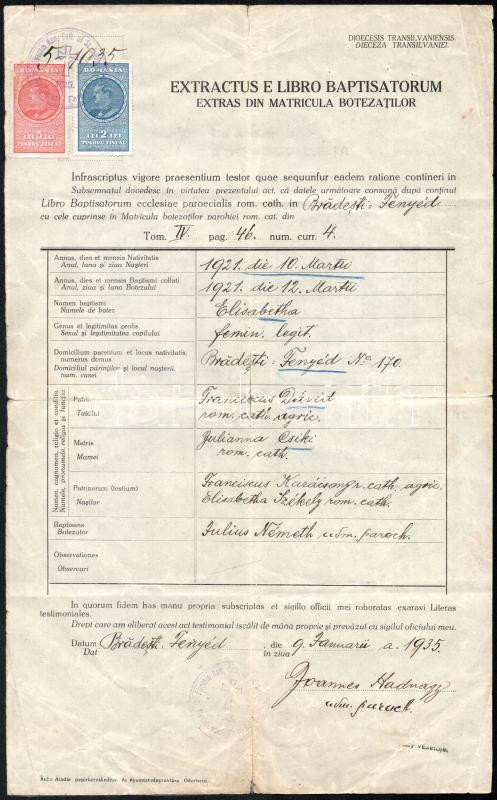 DIOECESIS TRANSILVANIENSIS.
DIECEZA TRANSILVANIEI.
5-1935
ROMANIA ROMANIA
LEI 5 LEI LEI 2 LEI
TIMBRU FISCAL TIMBRU FISCAL
EXTRACTUS E LIBRO BAPTISATORUM
EXTRAS DIN MATRICULA BOTEZAȚILOR
Infrascriptus vigore praesentium testor quae sequuntur eadem ratione contineri in
Subsemnatul dovedesc în virtutea prezentului act, că datele următoare consună după conținut
Libro Baptisatorum ecclesiae paroecialis rom. cath. in Brădești-Fenyéd
cu cele cuprinse în Matricula botezaților parohiei rom. cat. din
Tom. IV. pag. 46. num. curr. 4.
Annus, dies et mensis Nativitatis
Anul, luna și ziua Nașterii
1921. die 10. Martii
Annus, dies et mensis Baptismi collati
Anul, ziua și luna Botezului
1921. die 12. Martii
Nomen baptismi
Numele de botez
Elisabetha
Genus et legitimitas prolis
Sexul și legitimitatea copilului
femin. legit.
Domicilium parentum et locus nativitatis,
numerus domus
Domiciliul părinților și locul nașterii,
num. casei
Brădești-Fenyéd No 170.
Nomen, cognomen, religio et conditio
Numele, pronumele, religia și funcția
Patris
Tatălui
Franciscus Dávid
rom. cath. agric.
Matris
Mamei
Julianna Csiki
rom. cath.
Patrinorum (testium)
Nașilor
Franciscus Karácsony r. cath. agric.
Elisabetha Székely rom. cath.
Baptisans
Botezator
Julius Németh adm. paroch.
Observationes
Observari
In quorum fidem has manu propria subscriptas et sigillo officii mei roboratas exaravi Literas
testimoniales.
Drept care am eliberat acest act testimonial iscălit de mâna proprie și prevăzut cu sigilul oficiului meu.
Datum Brădești-Fenyéd, die 9. Januarii a. 1935.
Dat în ziua
Joannes Hadnagy
adm. paroch.